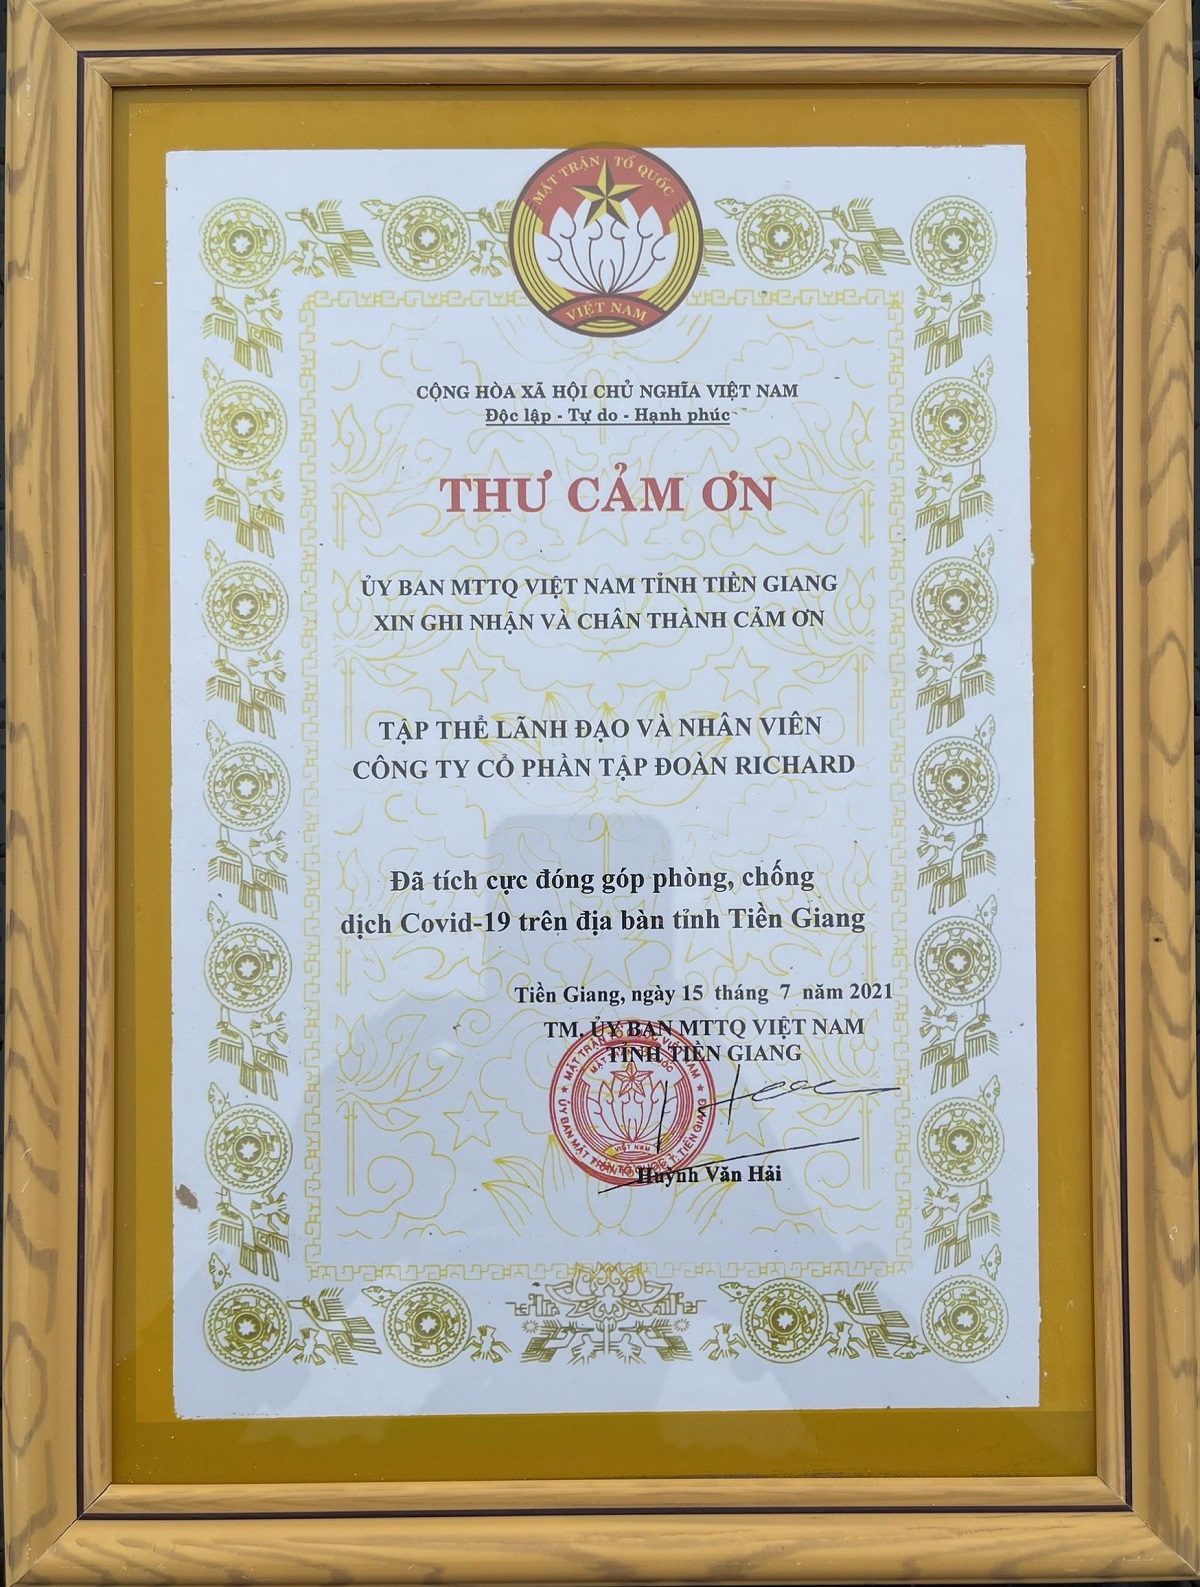 MẶT TRẬN TỔ QUỐC
VIỆT NAM
CỘNG HÒA XÃ HỘI CHỦ NGHĨA VIỆT NAM
Độc lập - Tự do - Hạnh phúc
THƯ CẢM ƠN
ỦY BAN MTTQ VIỆT NAM TỈNH TIỀN GIANG
XIN GHI NHẬN VÀ CHÂN THÀNH CẢM ƠN
TẬP THỂ LÃNH ĐẠO VÀ NHÂN VIÊN
CÔNG TY CỔ PHẦN TẬP ĐOÀN RICHARD
Đã tích cực đóng góp phòng, chống
dịch Covid-19 trên địa bàn tỉnh Tiền Giang
Tiền Giang, ngày 15 tháng 7 năm 2021
TM. ỦY BAN MTTQ VIỆT NAM
TỈNH TIỀN GIANG
VIỆT NAM
Huỳnh Văn Hải